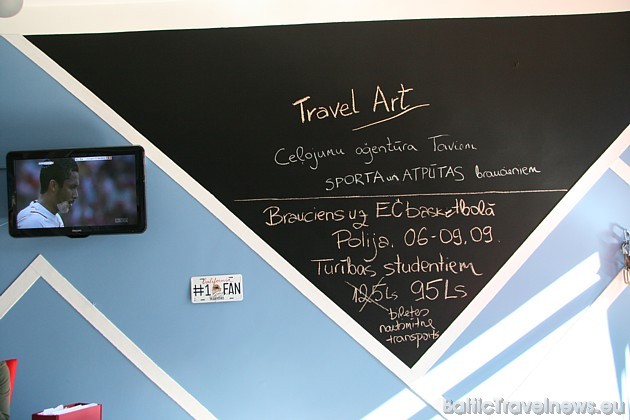 Travel Art
Ceļojumu aģentūra Taviem
SPORTA un ATPŪTAS braucieniem
Brauciens uz EČ basketbolā
Polija, 06-09.09.
Turības studentiem
125Ls 95Ls
biļetes
naktsmītne
transports
California
#1 FAN
BalticTravelnews.eu